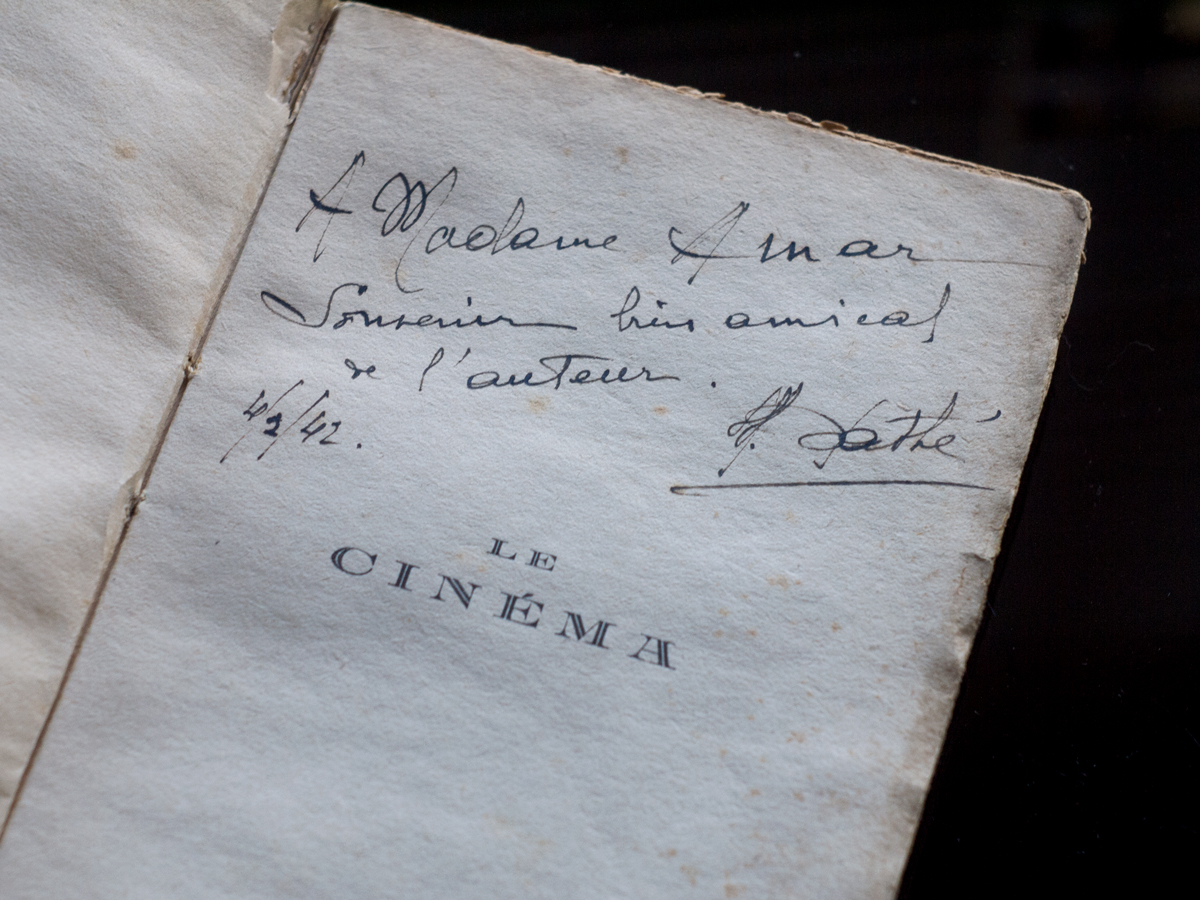 A Madame Amar
Souvenir bien amical
de l'auteur.
4/2/42.
H. Pathé
LE
CINÉMA